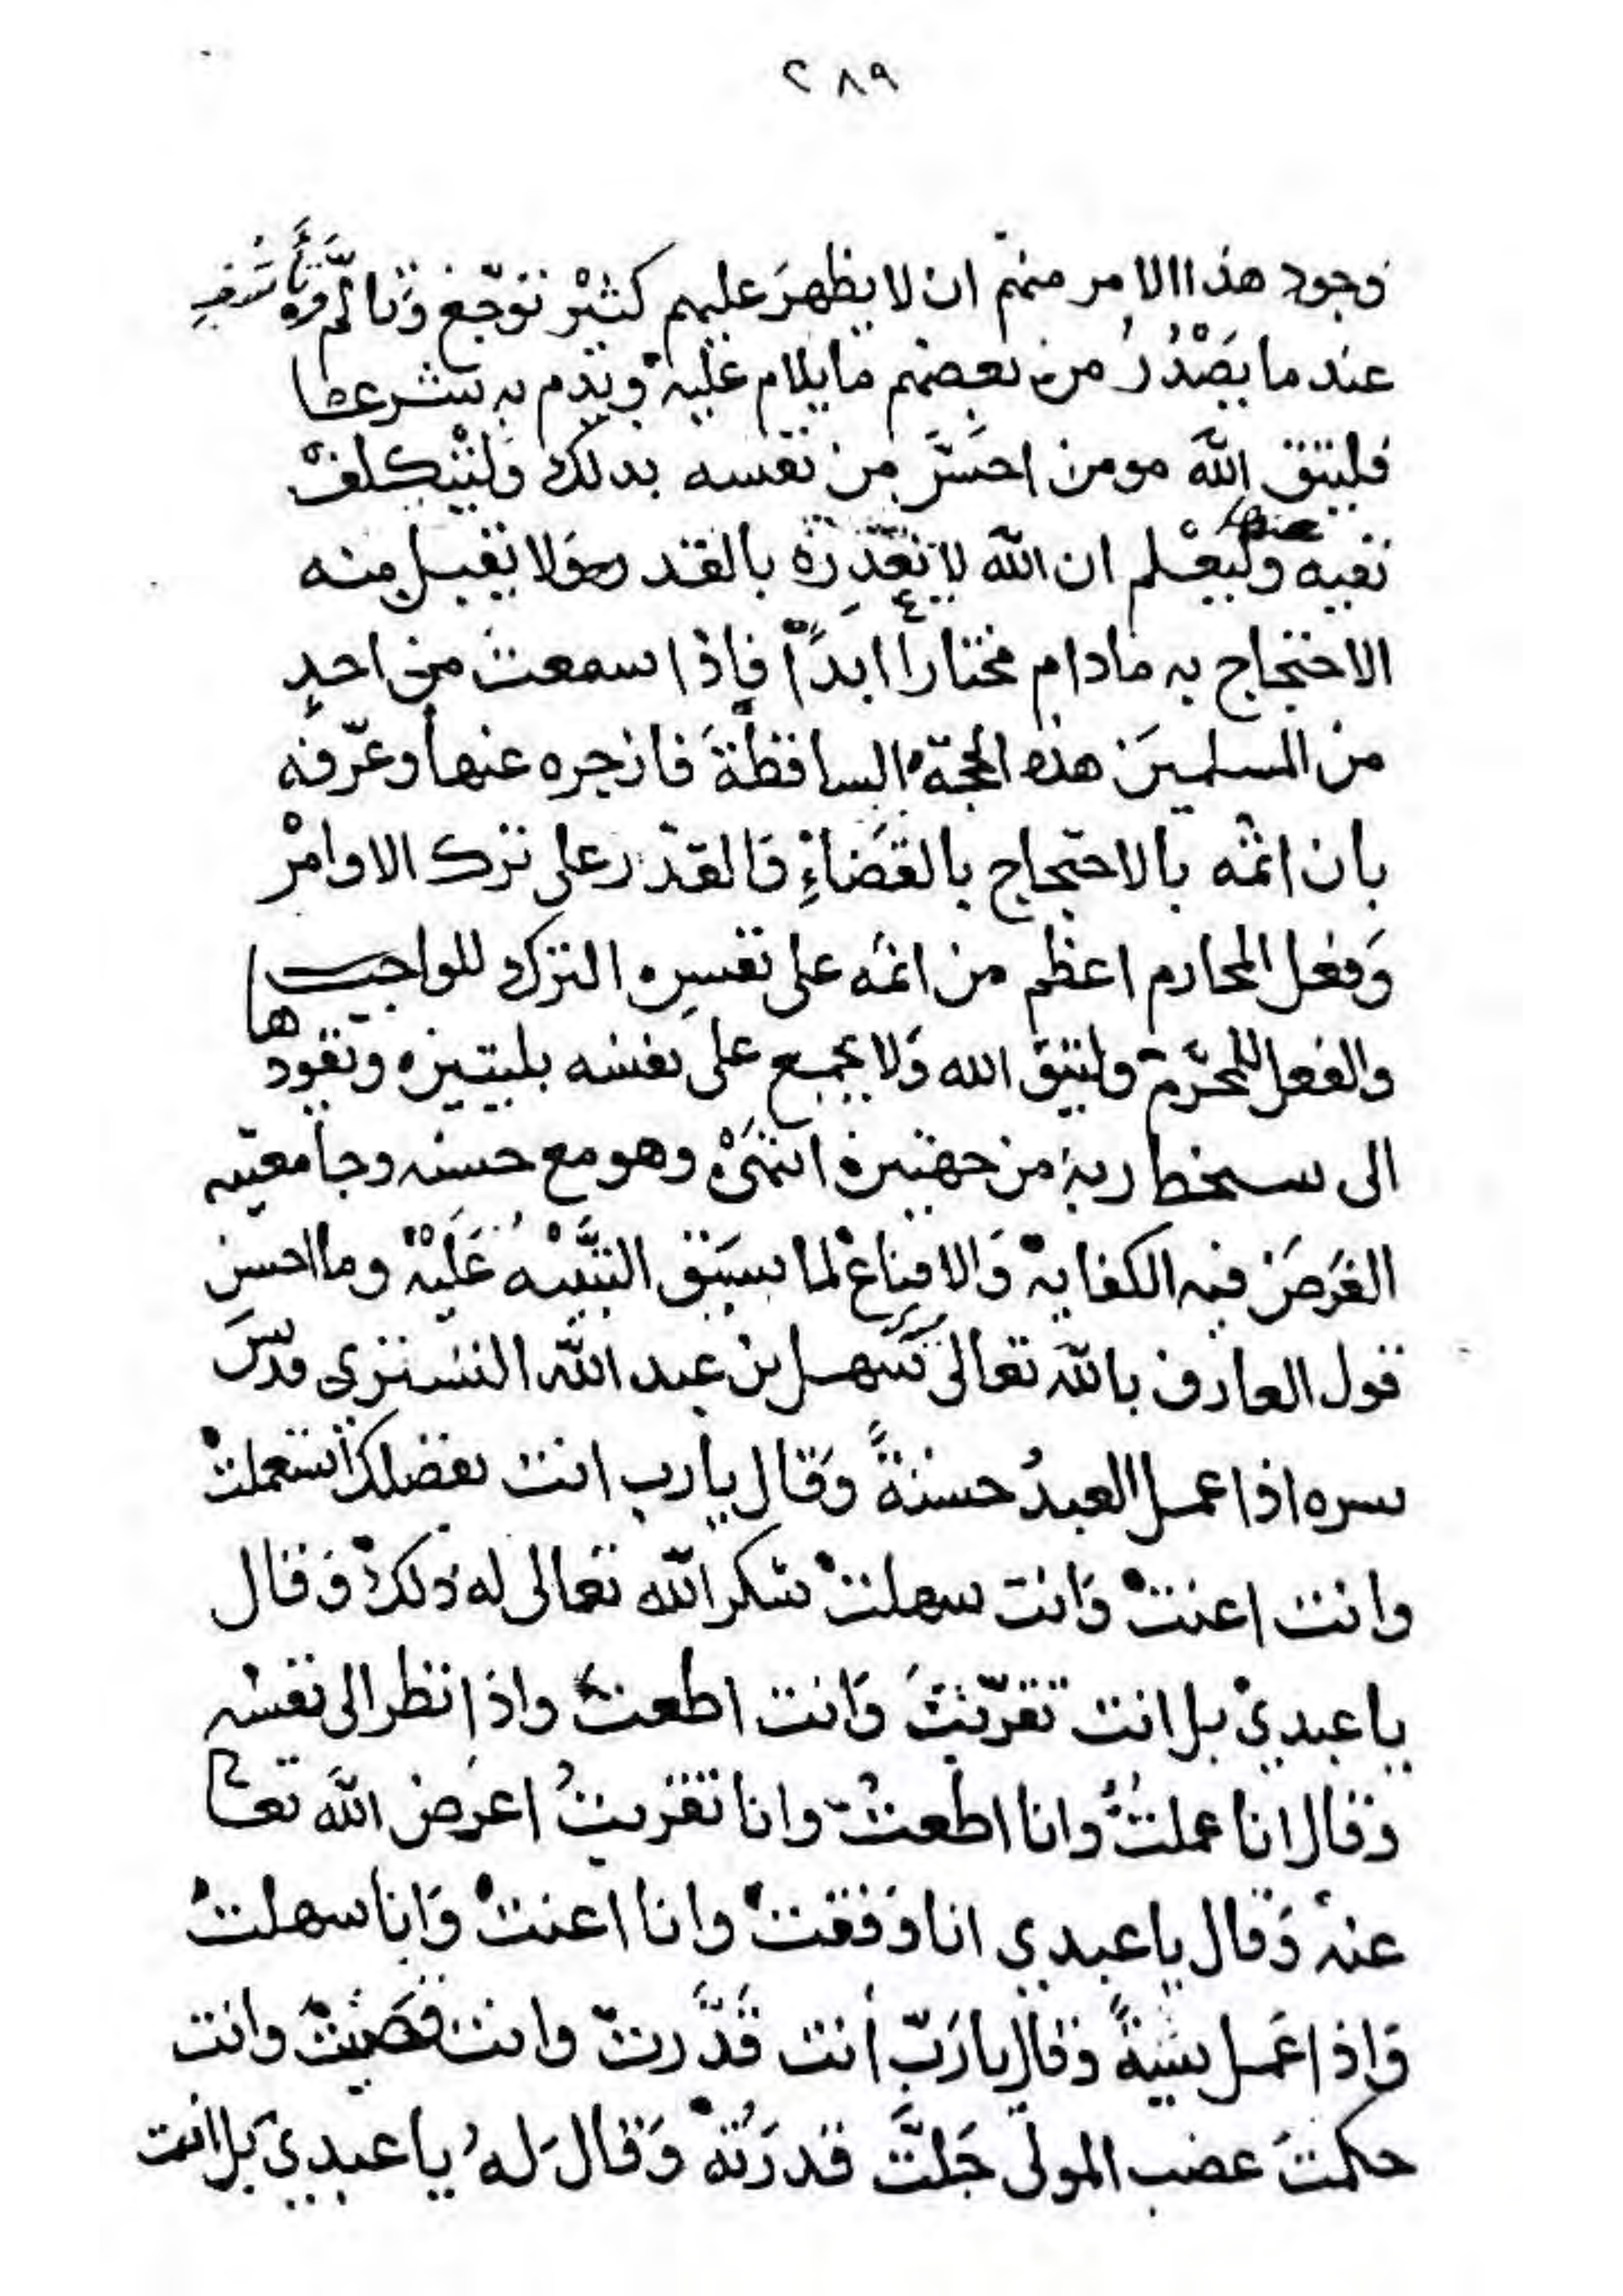 ٢٨٩
وجود هذا الامر منهم ان لا يظهرَ عليهم كثيْر توجّع وَتالّم وَتأسُّف
عند ما يَصْدُرُ من بعضهم ما يلام عليهْ ويذم به شرعا
فليتق اللّه مومن احسَّ من نفسه بذلك وَليْتكلفْ
نفيه عنها وليعْلم ان اللّه لا يَعْذِرُه بالقدر ولا يقبل منه
الاحتجاج به مادام مختاراً ابداً فإذا سمعت من احدٍ
من المسلمينَ هذه الحجّة الساقطةَ فازجره عنها وعرّفه
بان اثمْه بالاحتجاج بالقَضاءِ وَالقدَر على ترك الاوامرْ
وَفعل المحارم اعظم من اثمه على نفسِ الترك للواجب
والفعل للمحرّم وليتق الله وَلا يجمع على نفسه بليتين ويقودها
الى سخط ربه من جهتين انتهىْ وهو مع حسنه وجامعيته
الغَرضَ فيه الكفايةْ وَالاقناعْ لما سبَق التَّنْبيْهُ عَليْهْ وما احسن
قول العارف باللّه تعالى سَهل بن عبد اللّه التستري قدسَ
سره اذا عمل العبدُ حسنةً وَقال يارب انت بفضلك استعملتْ
وانت اعنتْ وَانت سهلتْ شكر اللّه تعالى له ذلكْ وَقال
يا عبديْ بل انت تقرّبتَ وَانت اطعتَ واذا نظر الى نفسْه
وَقال انا عملتُ وانا اطعتُ وانا تقربتُ اعرَض اللّه تعالى
عنهْ وَقال يا عبدي انا وَفقتْ وانا اعنتْ وَانا سهلتُ
وَاذا عَمل سَيئةً وَقال يا رَبّ أنت قَدَّرتَ وانت قضَيْتَ وانت
حكمتَ غضب المولى جَلتَّ قدرَتُهْ وَقالَ لهُ يا عبديْ بل انت